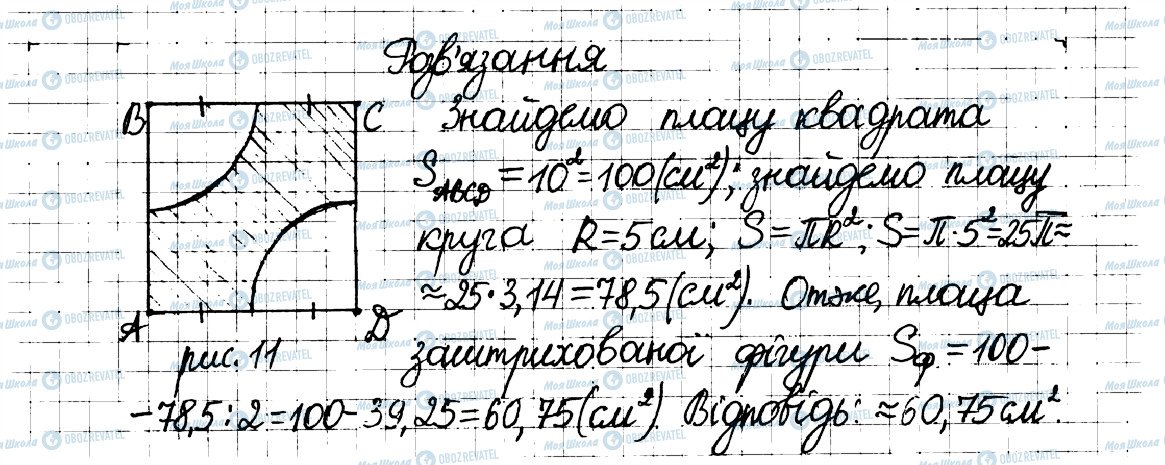 Розв'язання
B C Знайдемо площу квадрата
S_ABCD = 10² = 100 (см²); знайдемо площу
круга R = 5 см; S = πR²; S = π · 5² = 25π ≈
≈ 25 · 3,14 = 78,5 (см²). Отже, площа
A D
рис. 11 заштрихованої фігури Sф = 100 −
− 78,5 : 2 = 100 − 39,25 = 60,75 (см²) Відповідь: ≈ 60,75 см².
МояШкола OBOZREVATEL